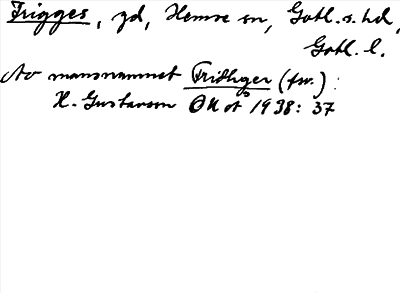 Frigges, gd, Hemse sn, Gotl. s. hd,
Gotl. l.
Av mansnamnet Fridhger (fv.):
H. Gustavson ON ot 1938: 37